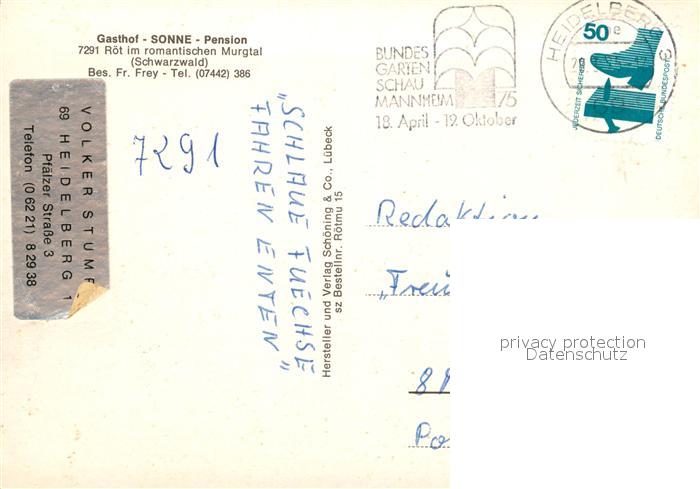 Gasthof - SONNE - Pension
7291 Röt im romantischen Murgtal
(Schwarzwald)
Bes. Fr. Frey - Tel. (07442) 386
VOLKER STUMP
69 HEIDELBERG 1
Pfälzer Straße 3
Telefon (0 62 21) 8 29 38
7291
„SCHLAUE FUECHSE
FAHREN ENTEN"
Hersteller und Verlag Schöning & Co., Lübeck
sz Bestellnr. Rötmu 15
BUNDES
GARTEN
SCHAU
MANNHEIM 75
18. April - 19. Oktober
HEIDELBERG
50
JEDERZEIT SICHERHEIT
DEUTSCHE BUNDESPOST
Redaktion
privacy protection
Datenschutz